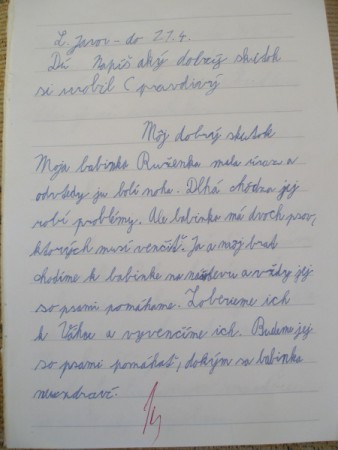 L. Jarov - do 21.4.
DÚ Napíš aký dobrý skutok
si urobil (pravdivý
Môj dobrý skutok
Moja babinka Ruženka mala úraz a
odvtedy ju bolí noha. Dlhá chôdza jej
robí problémy. Ale babinka má dvoch psov,
ktorých musí venčiť. Ja a moj brat
chodíme k babinke na návštevu a vždy jej
so psami pomáhame. Zoberieme ich
k Váhu a vyvenčíme ich. Budeme jej
so psami pomáhať, dokým sa babinka
neuzdraví.